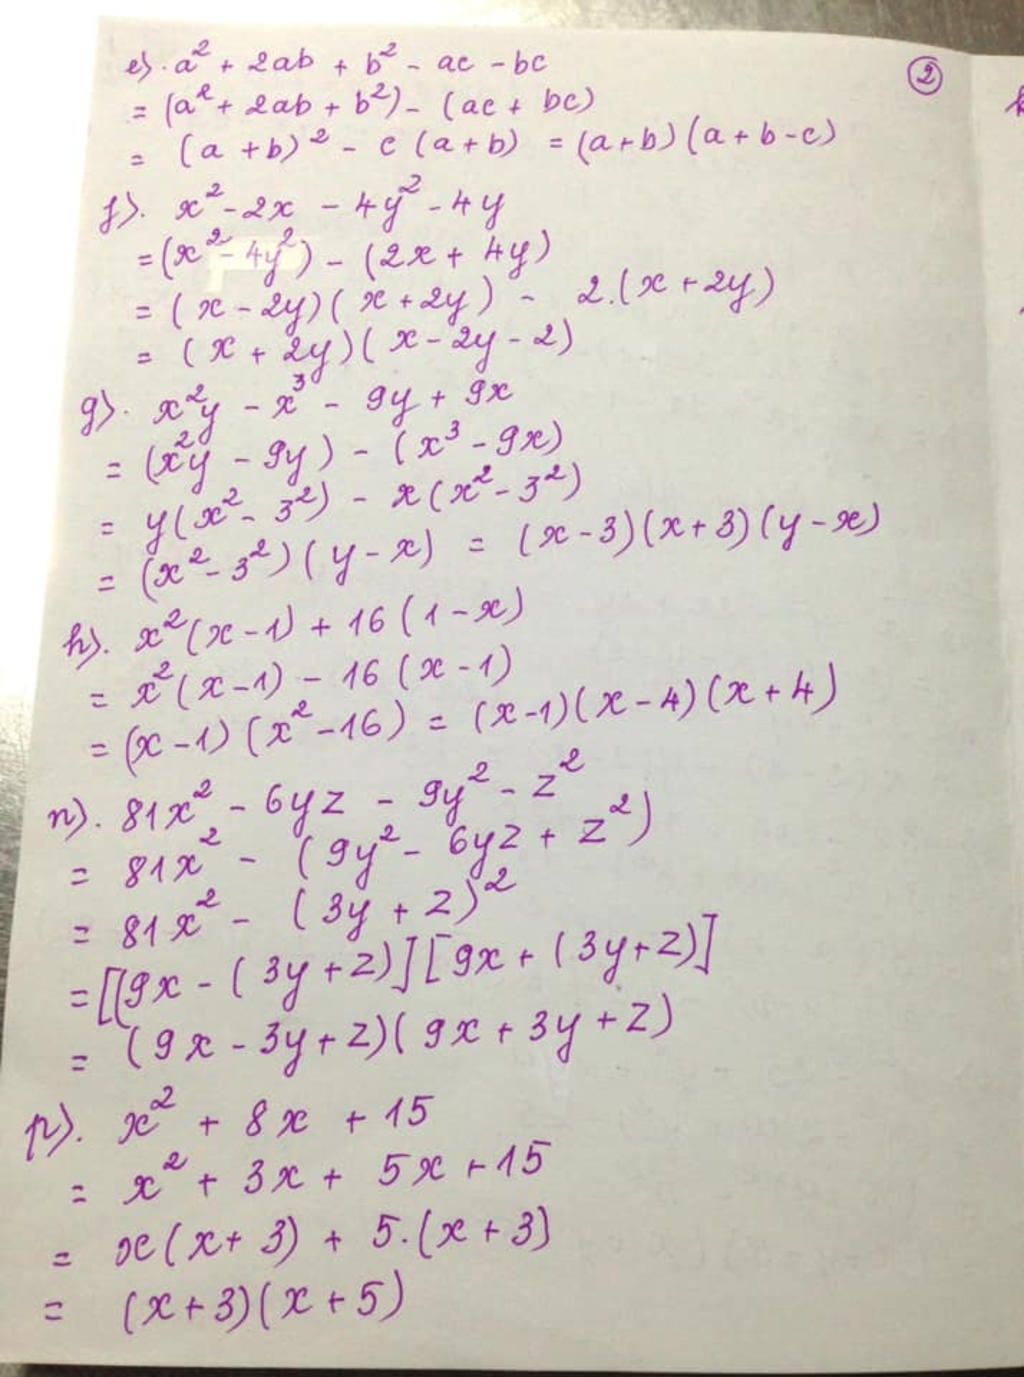 ②
e). a² + 2ab + b² - ac - bc
= (a² + 2ab + b²) - (ac + bc)
= (a + b)² - c (a + b) = (a + b) (a + b - c)
f). x² - 2x - 4y² - 4y
= (x² - 4y²) - (2x + 4y)
= (x - 2y) (x + 2y) - 2.(x + 2y)
= (x + 2y) (x - 2y - 2)
g). x²y - x³ - 9y + 9x
= (x²y - 9y) - (x³ - 9x)
= y(x² - 3²) - x(x² - 3²)
= (x² - 3²) (y - x) = (x - 3) (x + 3) (y - x)
h). x² (x - 1) + 16 (1 - x)
= x² (x - 1) - 16 (x - 1)
= (x - 1) (x² - 16) = (x - 1) (x - 4) (x + 4)
n). 81x² - 6yz - 9y² - z²
= 81x² - (9y² - 6yz + z²)
= 81x² - (3y + z)²
= [(9x - (3y + z)] [9x + (3y + z)]
= (9x - 3y + z) (9x + 3y + z)
p). x² + 8x + 15
= x² + 3x + 5x + 15
= x(x + 3) + 5.(x + 3)
= (x + 3) (x + 5)